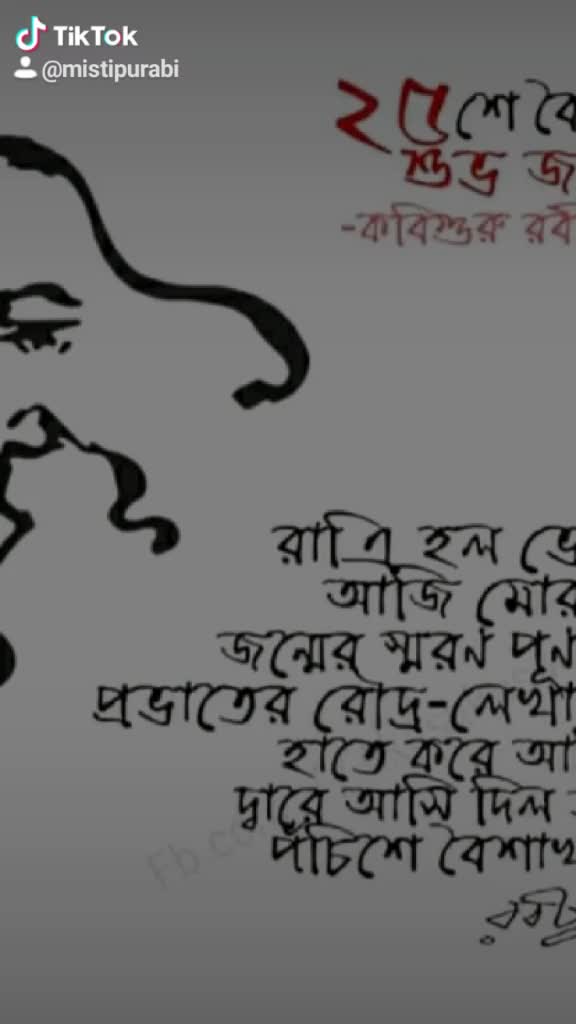 TikTok
@mistipurabi
২৫শে বৈ
শুভ জ
-কবিগুরু রবী
রাত্রি হল ভো
আজি মোর
জন্মের স্মরণ পূর্ণ
প্রভাতের রৌদ্র-লেখা
হাতে করে আ
দ্বারে আসি দিল
পঁচিশে বৈশাখ
Fb.co